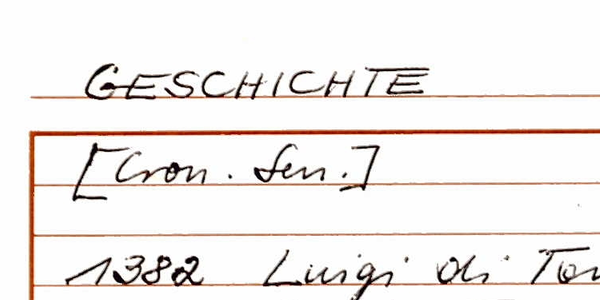 GESCHICHTE
[Cron. Sen.]
1382 Luigi di